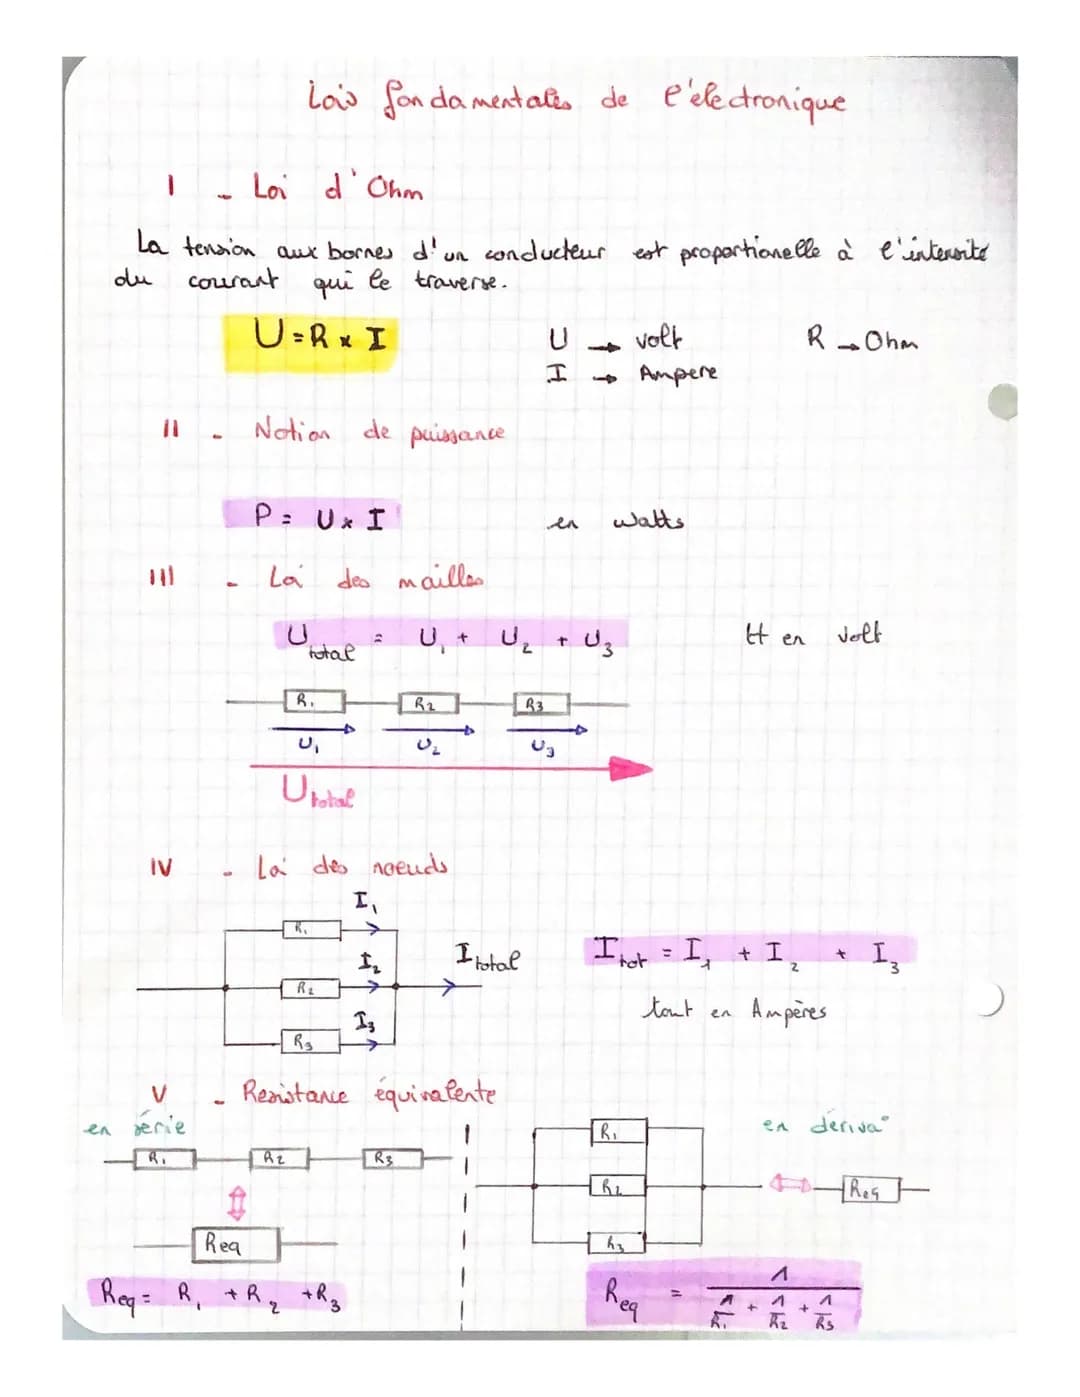 Lois fondamentales de l'électronique
I - Loi d'Ohm
La tension aux bornes d'un conducteur est proportionelle à l'intensité
du courant qui le traverse.
U = R x I
U → volt
R → Ohm
I → Ampere
II - Notion de puissance
P = U x I
en watts
III - Loi des mailles
U total = U1 + U2 + U3
tt en volt
R1 R2 R3
U1 U2 U3
U total
IV - Loi des noeuds
I1
R1
I2
I total
I tot = I1 + I2 + I3
R2
tout en Ampères
I3
R3
V - Resistance équivalente
en série
R1 R2 R3
Req
Req = R1 + R2 + R3
en dériva°
R1
R2
Req
R3
Req = 1 / (1/R1 + 1/R2 + 1/R3)